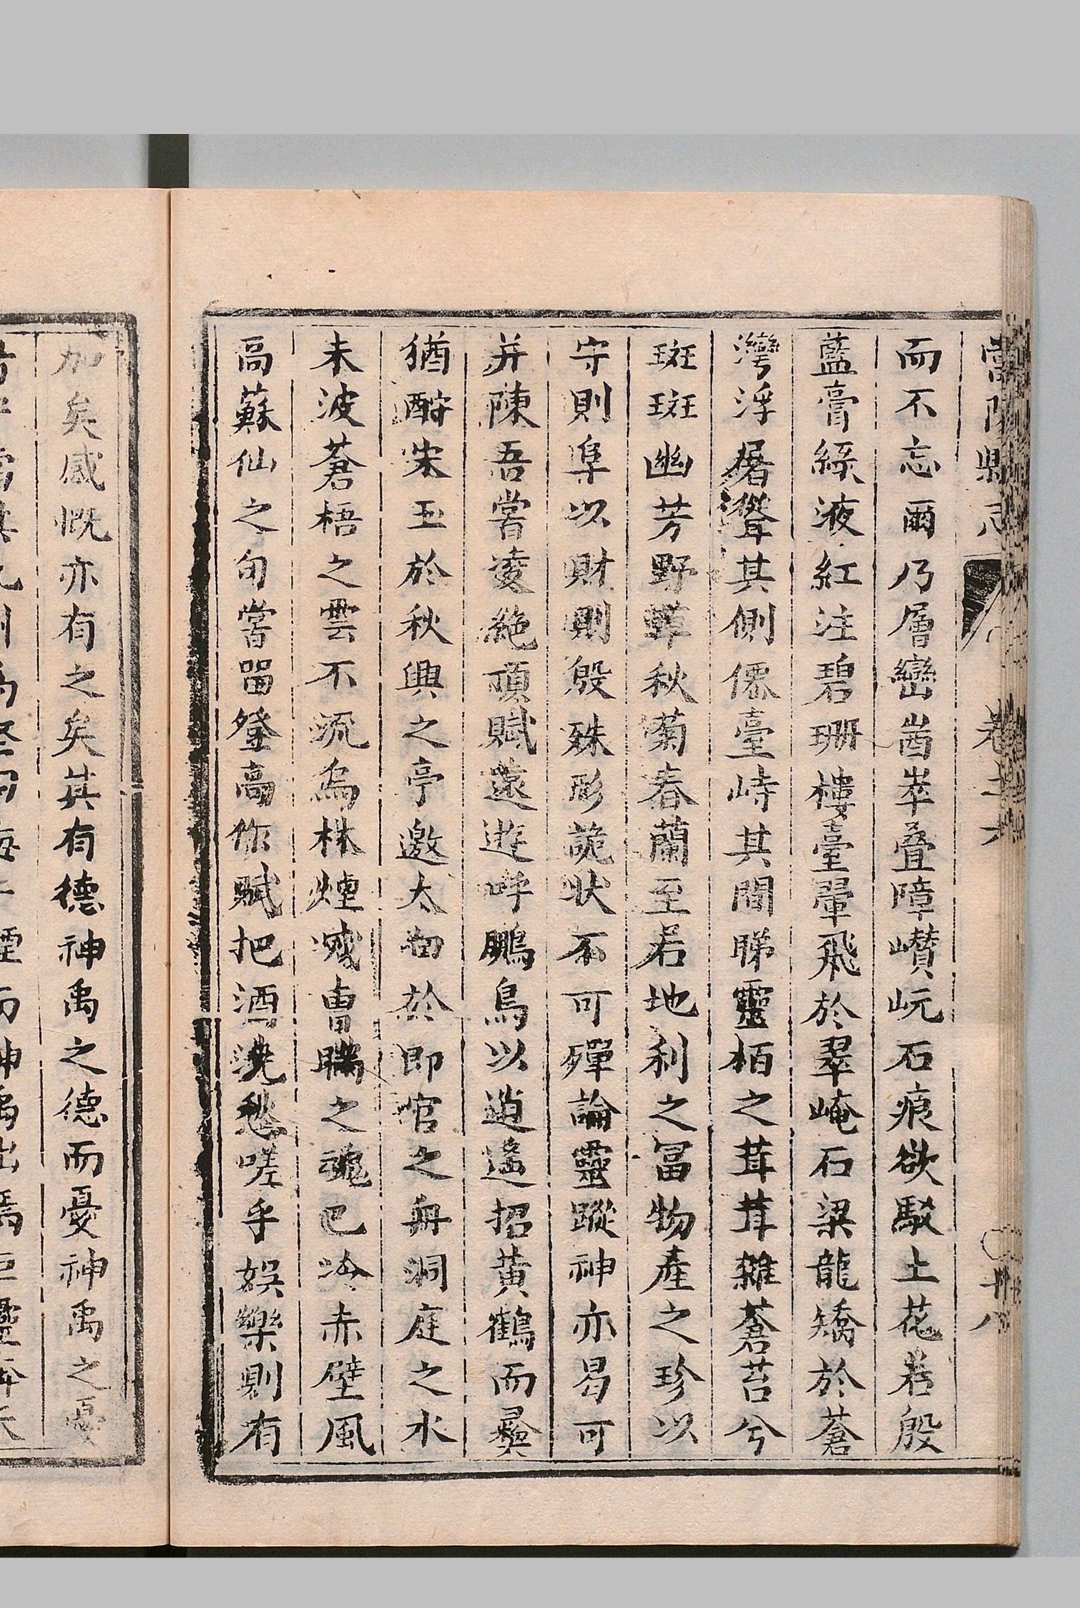 當陽縣志 卷之六
而不忘爾乃層巒崷崒疊障巑岏石痕欲駁土花若殷
藍膏綠液紅注碧珊樓臺翬飛於翠崦石梁龍矯於蒼
灣浮屠聳其側僊臺峙其間睇靈栢之茸茸雜蒼苔兮
斑斑幽芳野蕚秋菊春蘭至若地利之冨物產之珍以
守則阜以財則殷殊形詭狀不可殫論靈蹤神亦曷可
并陳吾嘗凌絶頂賦遠遊呼鵬鳥以逍遙招黄鶴而彞
猶酹宋玉於秋興之亭邀太白於即官之舟洞庭之水
未波蒼梧之雲不流烏林煙烕曹瞞之魂已冷赤壁風
高蘇仙之句嘗留登高作賦把酒澆愁嗟乎娯樂則有
加矣感慨亦有之矣其有德神禹之德而憂神禹之憂